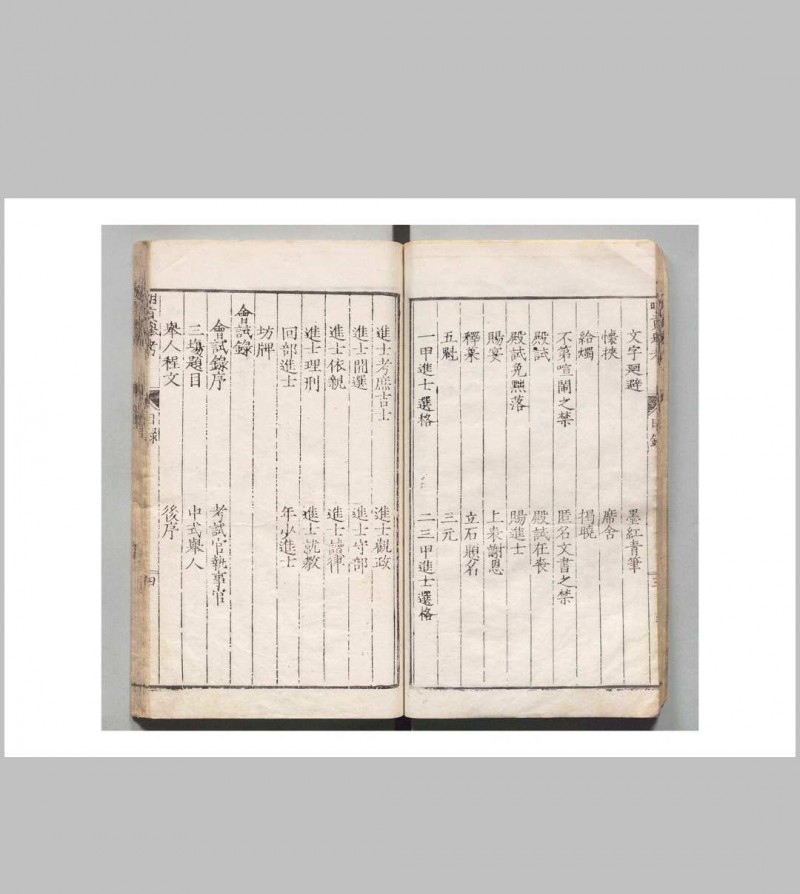 文字廻避 墨紅青筆
懷挾 席舍
給燭 揭曉
不第喧鬧之禁 匿名文書之禁
殿試 殿試在喪
殿試免黜落 賜進士
賜宴 上表謝恩
釋菜 立石題名
五魁 三元
一甲進士選格 二三甲進士選格
進士考庶吉士 進士觀政
進士間選 進士守部
進士依親 進士讀律
進士理刑 進士就教
回部進士 年少進士
坊牌
會試錄
會試錄序 考試官執事官
三場題目 中式舉人
舉人程文 後序
目錄 四